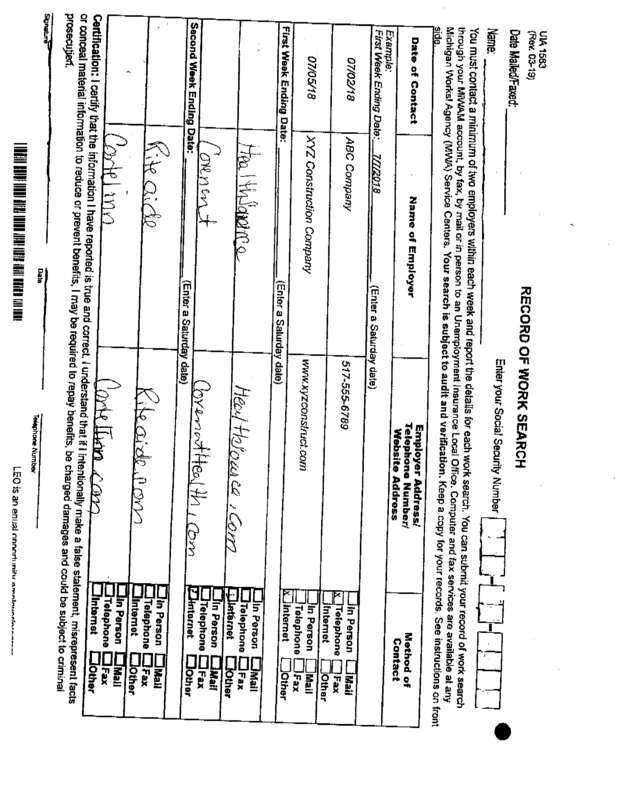 UIA 1583
(Rev. 03-19)
RECORD OF WORK SEARCH
Date Mailed/Faxed:
Enter your Social Security Number
Name:
You must contact a minimum of two employers within each week and report the details for each work search. You can submit your record of work search
through your MiWAM account, by fax, by mail or in person to an Unemployment Insurance Local Office. Computer and fax services are available at any
Michigan Works! Agency (MWA) Service Centers. Your search is subject to audit and verification. Keep a copy for your records. See instructions on front
side.
Date of Contact
Name of Employer
Employer Address/
Telephone Number/
Website Address
Method of
Contact
Example:
First Week Ending Date: 7/7/2018 (Enter a Saturday date)
07/02/18
ABC Company
517-555-6789
In Person Mail
X Telephone Fax
Internet Other
07/05/18
XYZ Construction Company
www.xyzconstruct.com
In Person Mail
Telephone Fax
X Internet Other
First Week Ending Date: (Enter a Saturday date)
In Person Mail
Telephone Fax
Internet Other
Covenent
In Person Mail
Telephone Fax
Internet Other
Second Week Ending Date: (Enter a Saturday date)
Rite aide
Rite aide.com
In Person Mail
Telephone Fax
Internet Other
In Person Mail
Telephone Fax
Internet Other
Certification: I certify that the information I have reported is true and correct. I understand that if I intentionally make a false statement, misrepresent facts
or conceal material information to reduce or prevent benefits, I may be required to repay benefits, be charged damages and could be subject to criminal
prosecution.
Signature
Date
Telephone Number
LEO is an equal opportunity